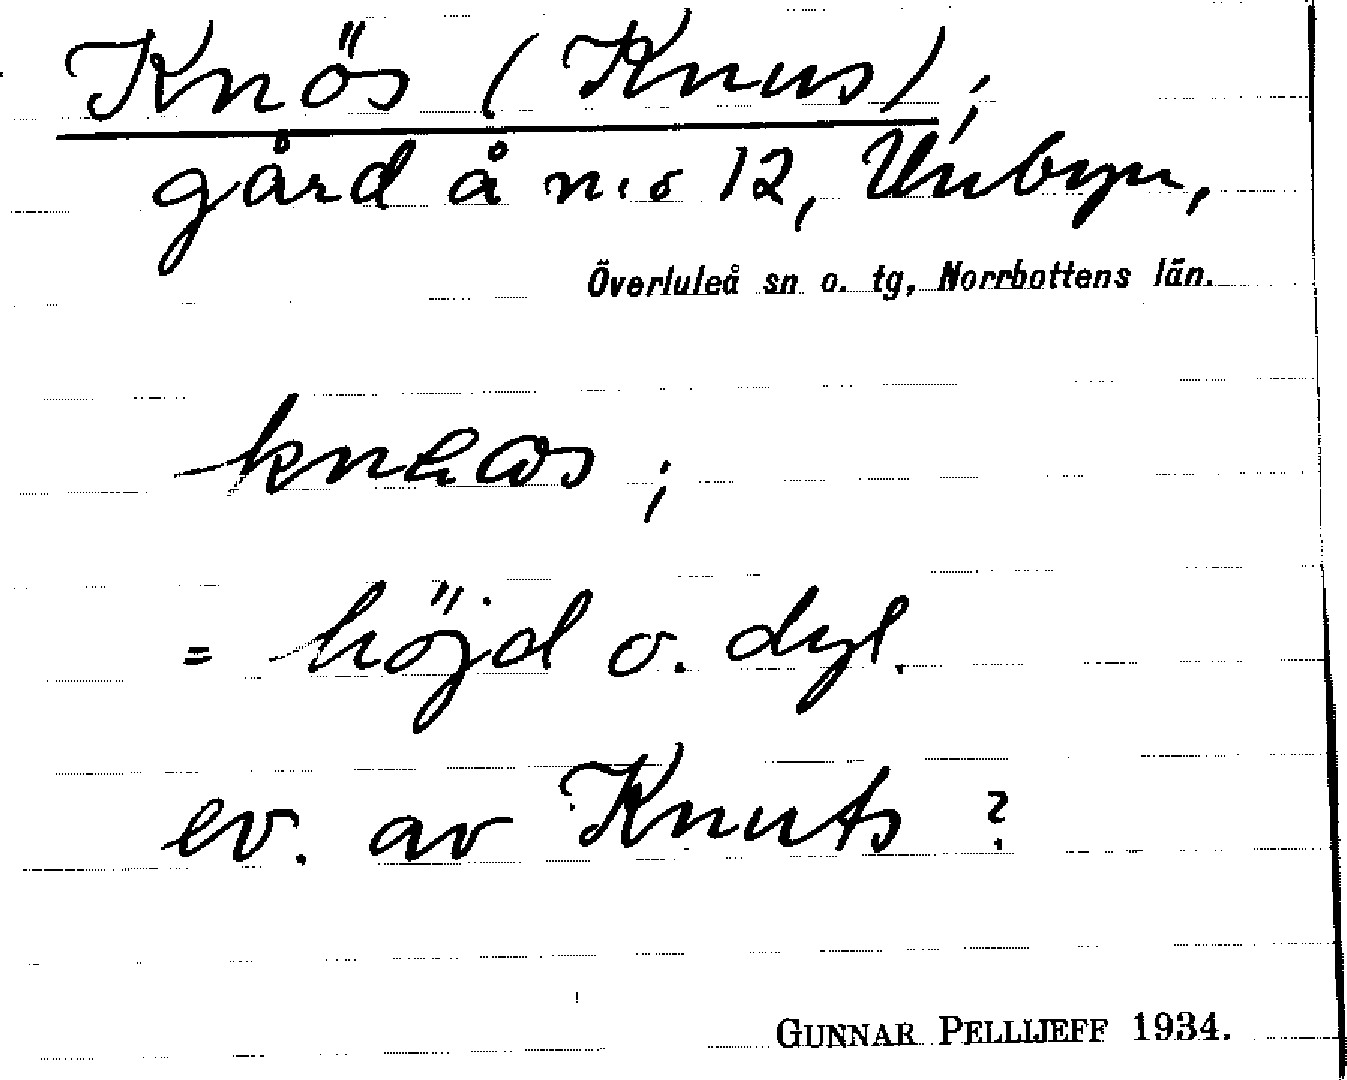 Knös (Knus);
gård å n:o 12, Unbyn,
Överluleå sn o. tg, Norrbottens län.
= höjd o. dyl.
ev. av Knuts?
GUNNAR PELLIJEFF 1934.